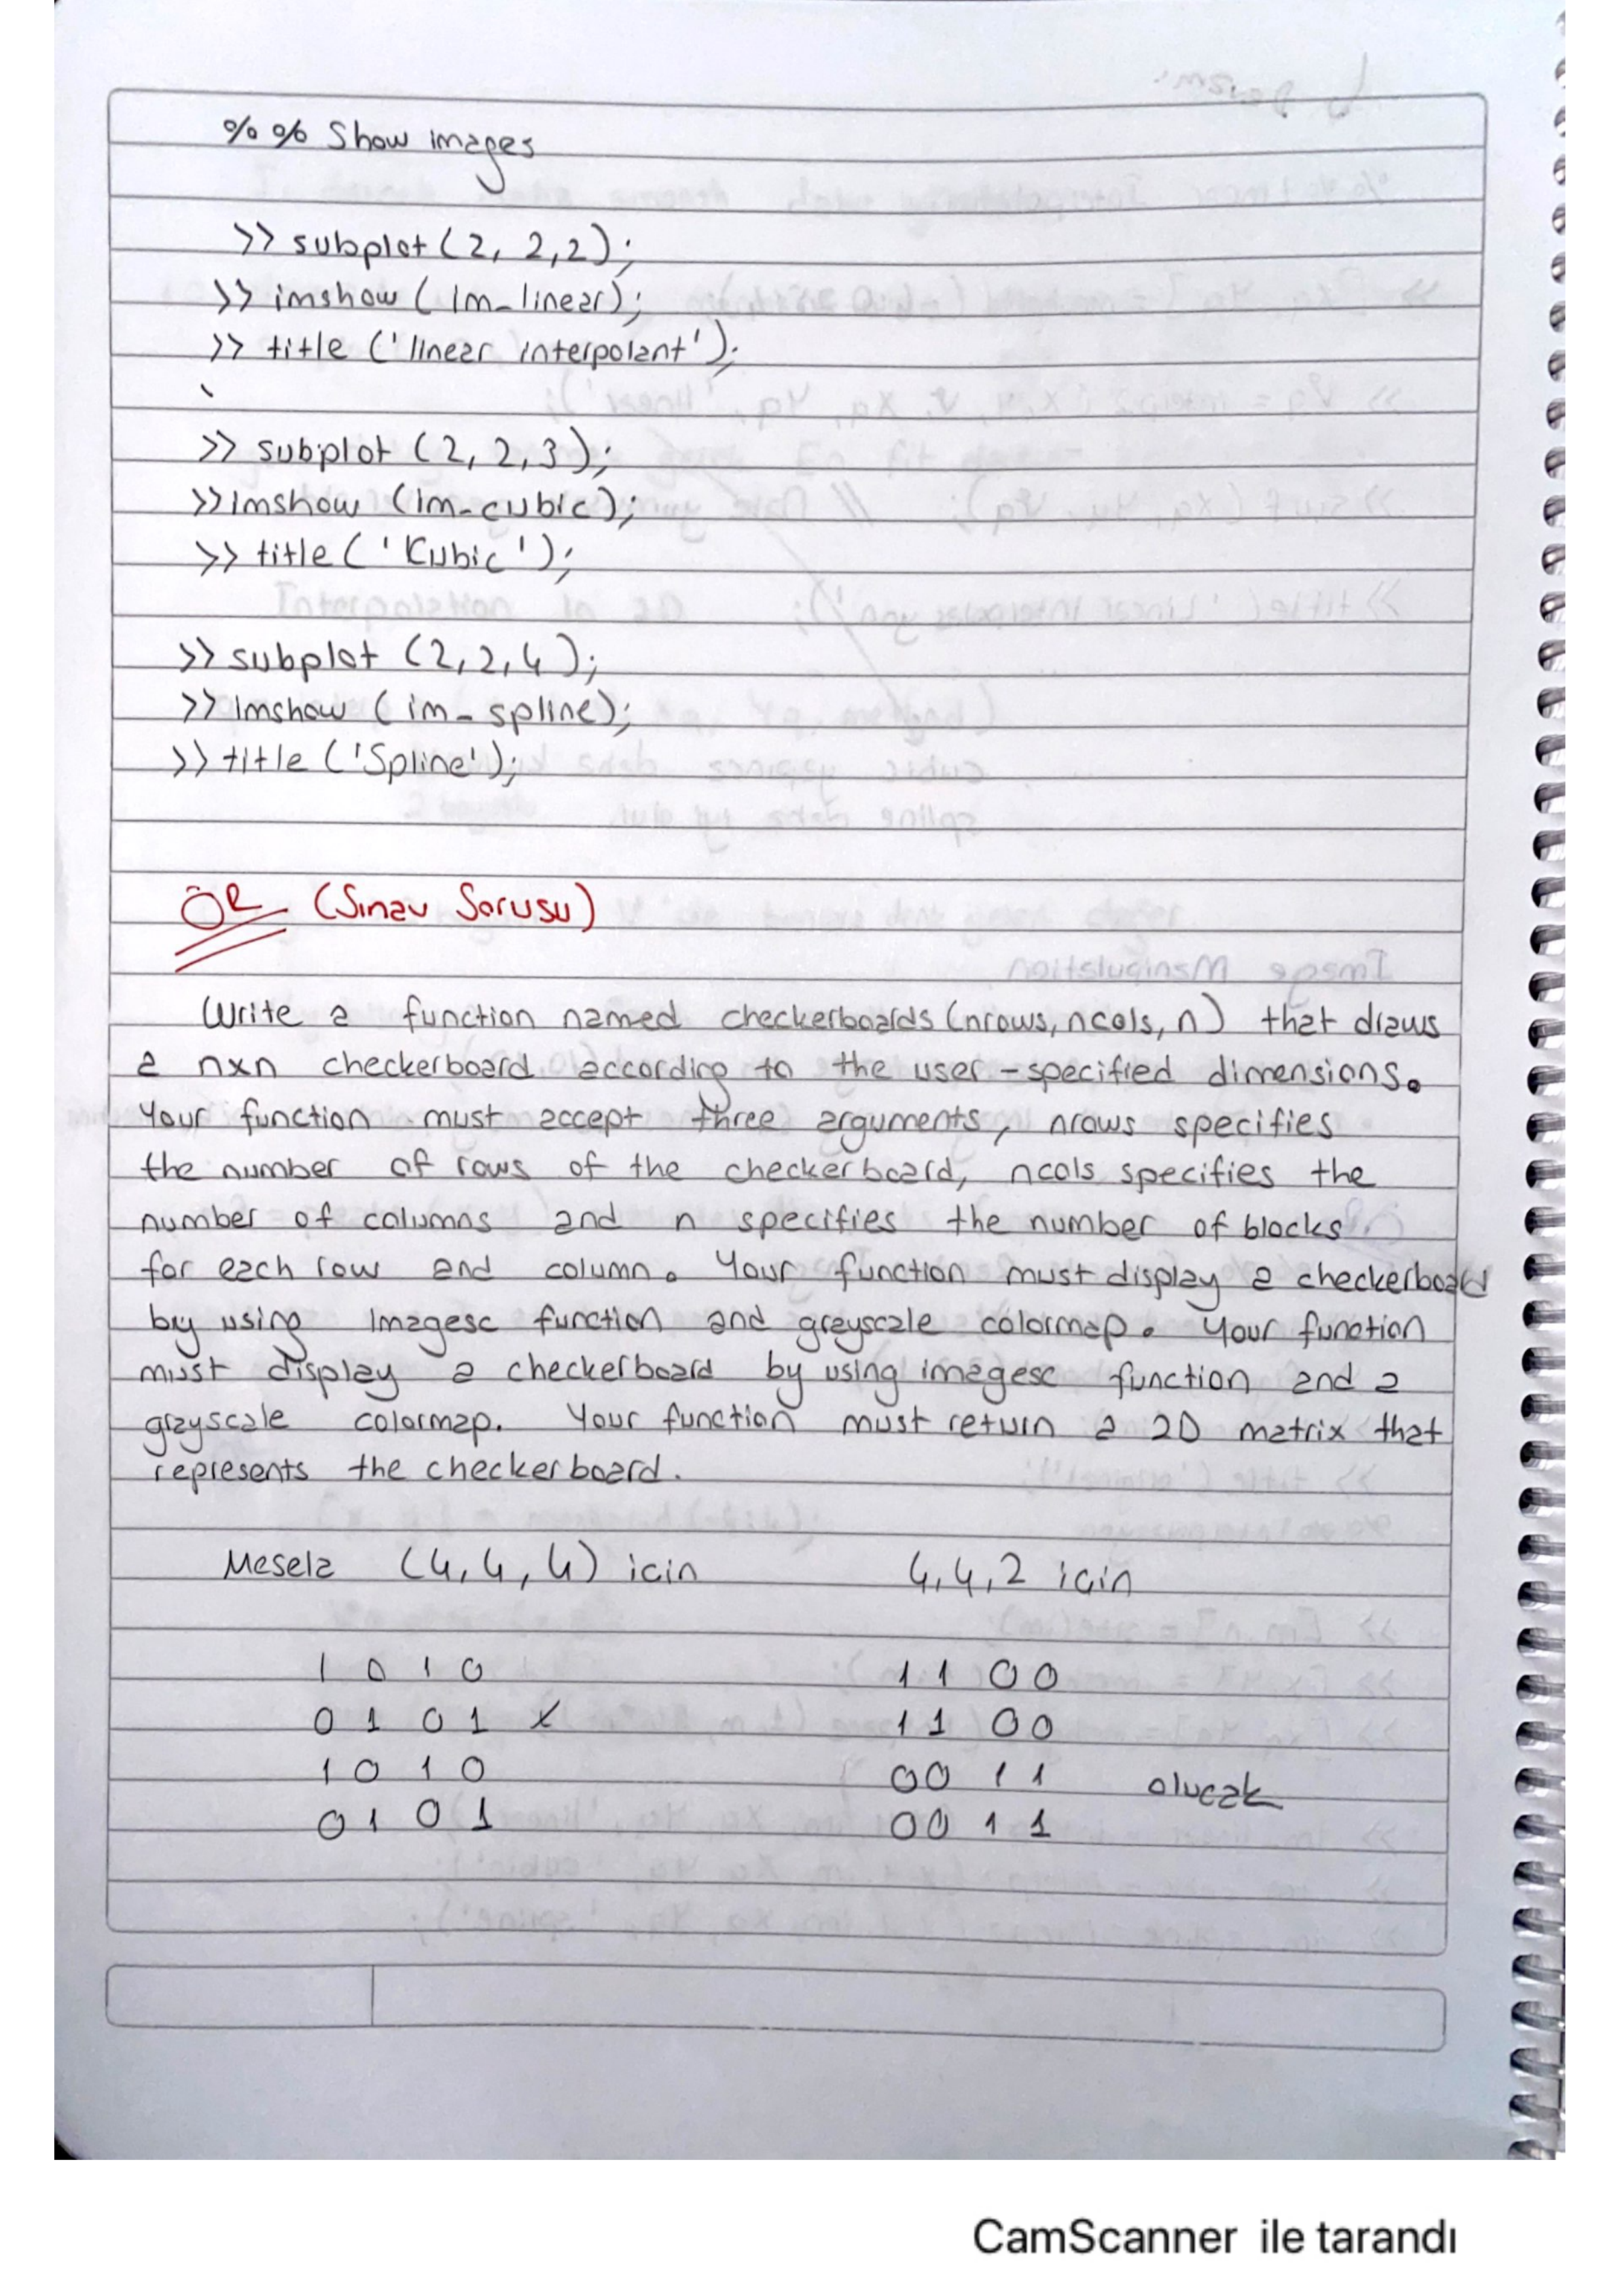 %% Show images
>> subplot (2, 2, 2);
>> imshow (im_linear);
>> title ('linear interpolant');
>> subplot (2, 2, 3);
>> imshow (im_cubic);
>> title ('Kubic');
>> subplot (2, 2, 4);
>> imshow (im_spline);
>> title ('Spline');
ÖR (Sınav Sorusu)
Write a function named checkerboards (nrows, ncols, n) that draws
a nxn checkerboard according to the user-specified dimensions.
Your function must accept three arguments, nrows specifies
the number of rows of the checkerboard, ncols specifies the
number of columns and n specifies the number of blocks
for each row and column. Your function must display a checkerboard
by using Imagesc function and greyscale colormap. Your function
must display a checkerboard by using imagesc function and a
grayscale colormap. Your function must return a 2D matrix that
represents the checkerboard.
Mesela (4, 4, 4) icin 4, 4, 2 icin
1 0 1 0 1 1 0 0
0 1 0 1 1 1 0 0
1 0 1 0 0 0 1 1 olucak
0 1 0 1 0 0 1 1
CamScanner ile tarandı